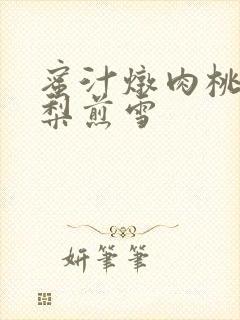 蜜汁燉肉桃
梨煎雪
妍筆筆